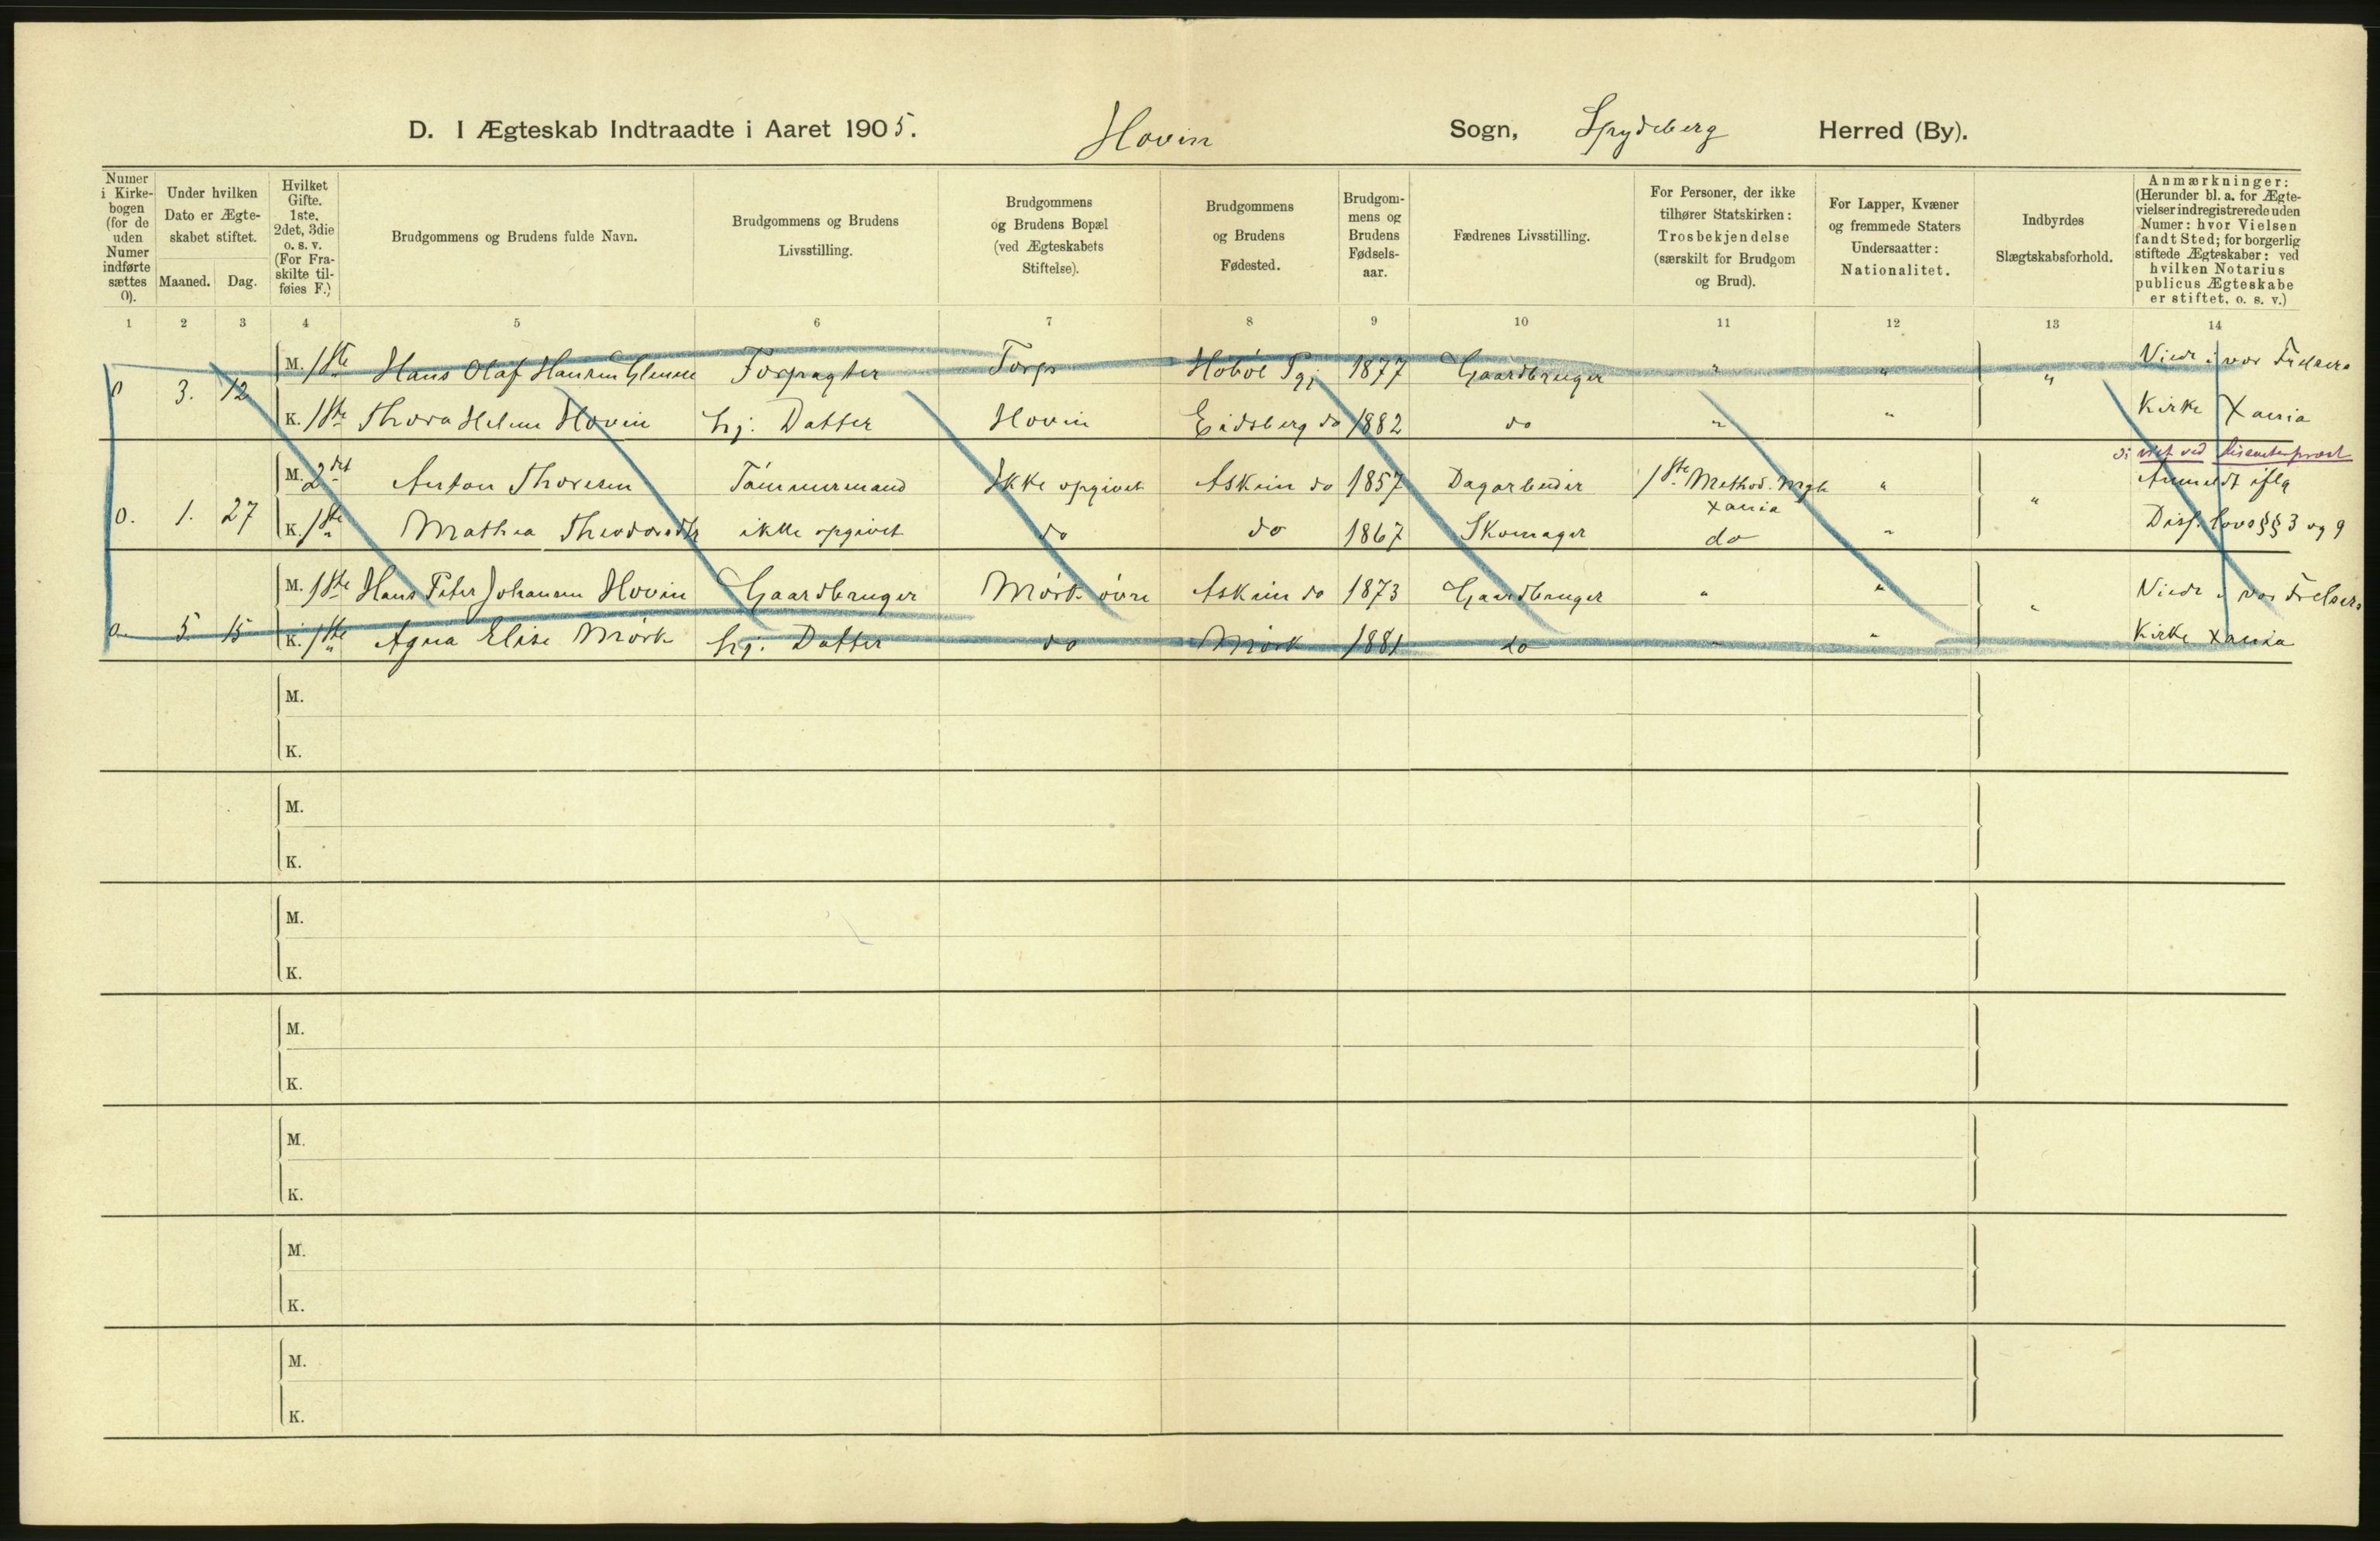 D. I Ægteskab Indtraadte i Aaret 1905. Hovin Sogn, Spydeberg Herred (By).
Numer i Kirkebogen (for de uden Numer indførte sættes 0).
Under hvilken Dato er Ægteskabet stiftet.
Maaned. Dag.
Hvilket Gifte. 1ste, 2det, 3die o. s. v. (For Fraskilte tilføies F.)
Brudgommens og Brudens fulde Navn.
Brudgommens og Brudens Livsstilling.
Brudgommens og Brudens Bopæl (ved Ægteskabets Stiftelse).
Brudgommens og Brudens Fødested.
Brudgommens og Brudens Fødselsaar.
Fædrenes Livsstilling.
For Personer, der ikke tilhører Statskirken: Trosbekjendelse (særskilt for Brudgom og Brud).
For Lapper, Kvæner og fremmede Staters Undersaatter: Nationalitet.
Indbyrdes Slægtskabsforhold.
Anmærkninger: (Herunder bl. a. for Ægtevielser indregistrerede uden Numer: hvor Vielsen fandt Sted; for borgerlig stiftede Ægteskaber: ved hvilken Notarius publicus Ægteskabe er stiftet, o. s. v.)
1 2 3 4 5 6 7 8 9 10 11 12 13 14
0 3. 12 M. 1ste Hans Olaf Hansen Glenne Forpagter Torp Hobøl Pgj 1877 Gaardbruger " " " Viede i vor Frelsers
K. 1ste Thora Helene Hovin hj: Datter Hovin Eidsberg do 1882 do " " Kirke Xania
viet ved dissenterprest
0. 1. 27 M. 2det Anton Thoresen Tømmermand Ikke opgivet Askim do 1857 Dagarbeider 1ste Method. Mgh Xania " " Anmeldt iflg
K. 1ste Mathea Theodorsdtr ikke opgivet do do 1867 Skomager do " Disp. lovs §§ 3 og 9
0. 5. 15 M. 1ste Hans Peter Johansen Hovin Gaardbruger Mørk øvre Askim do 1873 Gaardbruger " " " Viede i vor Frelsers
K. 1ste Agna Elise Mørk hj: Datter do Mørk 1881 do " " Kirke Xania
M.
K.
M.
K.
M.
K.
M.
K.
M.
K.
M.
K.
M.
K.